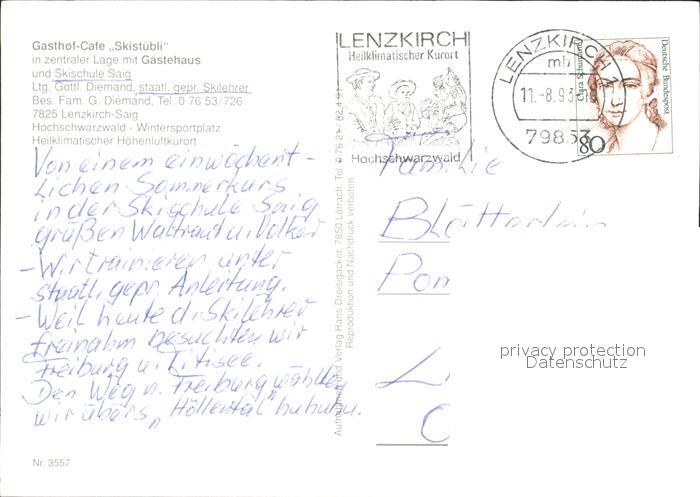 Gasthof-Cafe „Skistübli"
in zentraler Lage mit Gästehaus
und Skischule Saig
Ltg. Gottl. Diemand, staatl. gepr. Skilehrer
Bes. Fam. G. Diemand, Tel. 0 76 53/726
7825 Lenzkirch-Saig
Hochschwarzwald - Wintersportplatz
Heilklimatischer Höhenluftkurort
Von einem einwöchent-
lichen Sommerkurs
in der Skischule Saig
grüßen Waltraut u. Volker
- Wir trainieren unter
staatl. gepr. Anleitung.
- Weil heute d. Skilehrer
freinahm besuchten wir
Freiburg u. Titisee.
Den Weg n. Freiburg wählten
wir übers „Höllental"
Nr. 3557
Aufnahme und Verlag Hans Dreisgacker, 7850 Lörrach, Tel. 0 76 21
Reproduktion und Nachdruck verboten
LENZKIRCH
Heilklimatischer Kurort
Hochschwarzwald
LENZKIRCH 1
mb
11.-8.93
79853
Deutsche Bundespost
80
Familie
privacy protection
Datenschutz